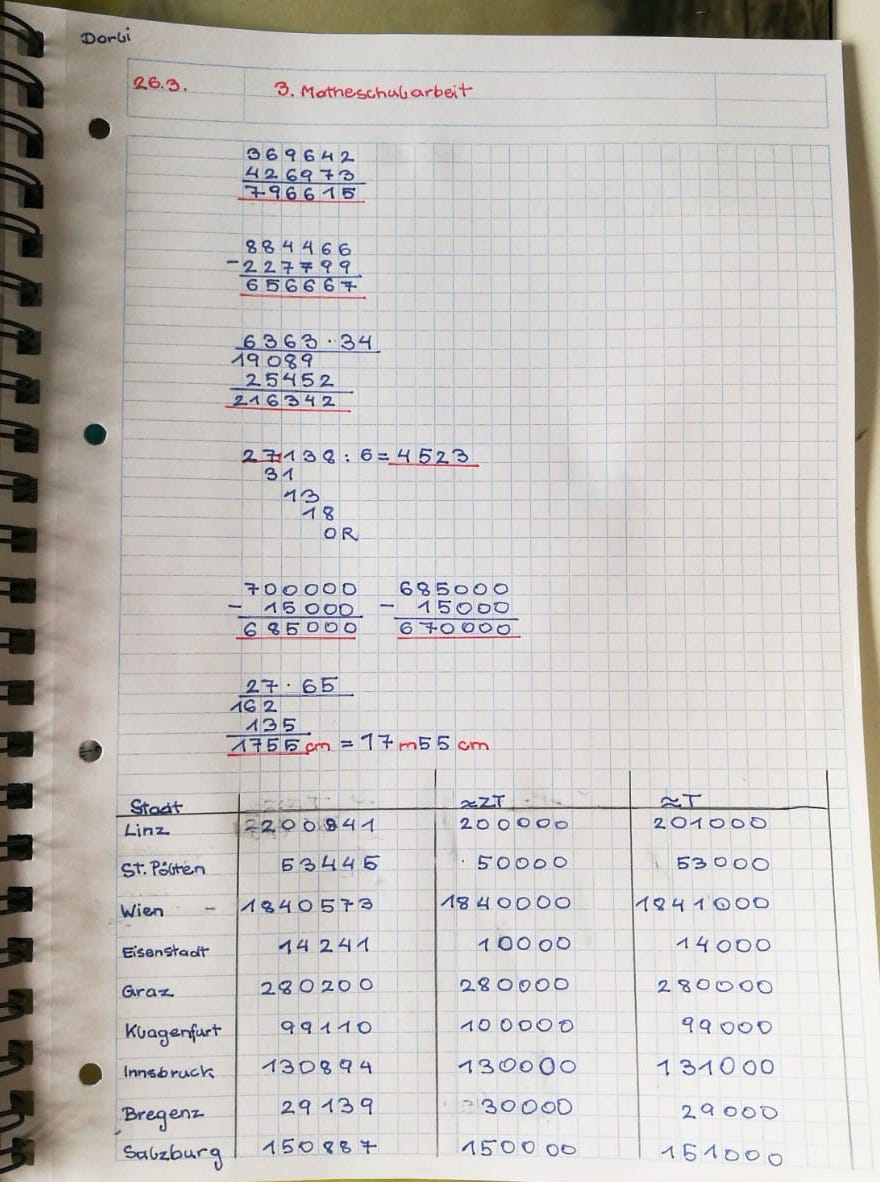 Dorli
26.3. 3. Matheschularbeit
369642
426973
796615
884466
- 227799
656667
6363 · 34
19089
25452
216342
27138 : 6 = 4523
31
13
18
0R
700000 685000
- 15000 - 15000
685000 670000
27 · 65
162
135
1755 cm = 17 m 55 cm
Stadt ≈ZT ≈T
Linz 200841 200000 201000
St. Pölten 53445 50000 53000
Wien - 1840573 1840000 1841000
Eisenstadt 14241 10000 14000
Graz 280200 280000 280000
Klagenfurt 99110 100000 99000
Innsbruck 130894 130000 131000
Bregenz 29139 30000 29000
Salzburg 150887 150000 151000